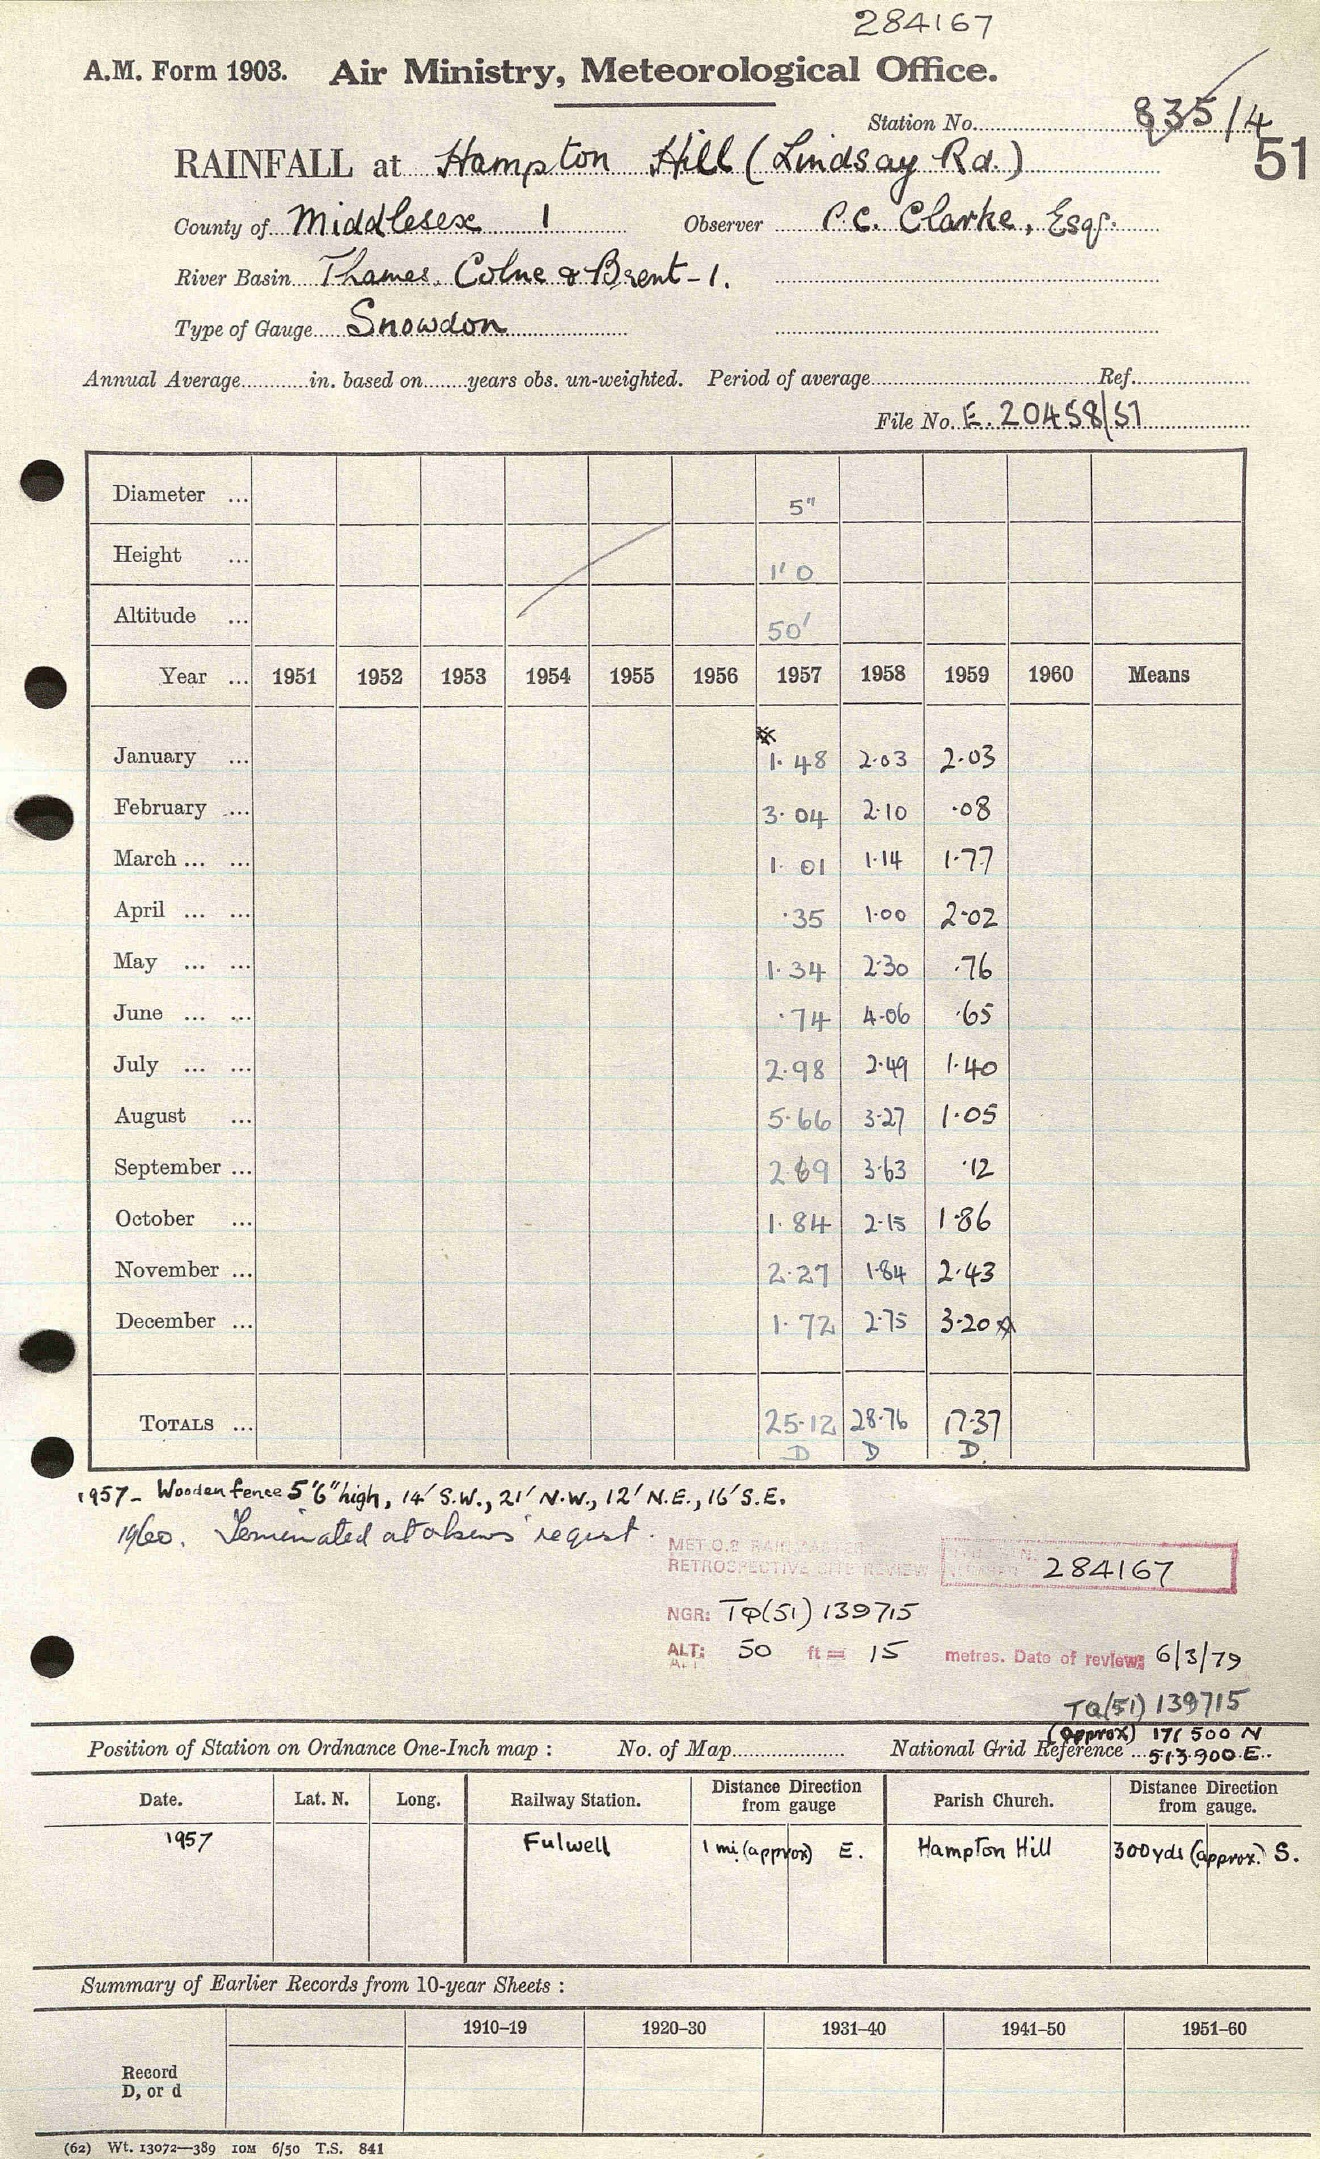 284167
A.M. Form 1903. Air Ministry, Meteorological Office.
Station No. 835/4
51
RAINFALL at Hampton Hill (Lindsay Rd.)
County of Middlesex 1 Observer P.C. Clarke, Esq.
River Basin Thames. Colne & Brent-1.
Type of Gauge Snowdon
Annual Average in. based on years obs. un-weighted. Period of average Ref.
File No. E.20458/57
Diameter ... 5"
Height ... 1'0
Altitude ... 50'
Year ... 1951 1952 1953 1954 1955 1956 1957 1958 1959 1960 Means
January ... 1.48 2.03 2.03
February ... 3.04 2.10 .08
March ... ... 1.01 1.14 1.77
April ... ... .35 1.00 2.02
May ... ... 1.34 2.30 .76
June ... ... .74 4.06 .65
July ... ... 2.98 2.49 1.40
August ... 5.66 3.27 1.05
September ... 2.69 3.63 .12
October ... 1.84 2.15 1.86
November ... 2.27 1.84 2.43
December ... 1.72 2.75 3.20
TOTALS ... 25.12 28.76 17.37
D D D.
1957- Wooden fence 5'6" high, 14' S.W., 21' N.W., 12' N.E., 16' S.E.
1960. Terminated at observers' request.
RETROSPECTIVE SITE REVIEW 284167
NGR: TQ(51) 139715
ALT: 50 ft = 15 metres. Date of review: 6/3/79
TQ(51) 139715
(approx) 171 500 N
Position of Station on Ordnance One-Inch map : No. of Map National Grid Reference 513900 E.
Date. Lat. N. Long. Railway Station. Distance Direction from gauge Parish Church. Distance Direction from gauge.
1957 Fulwell 1 mi (approx) E. Hampton Hill 300 yds (approx.) S.
Summary of Earlier Records from 10-year Sheets :
1910–19 1920–30 1931–40 1941–50 1951–60
Record
D, or d
(62) Wt. 13072—389 10M 6/50 T.S. 841